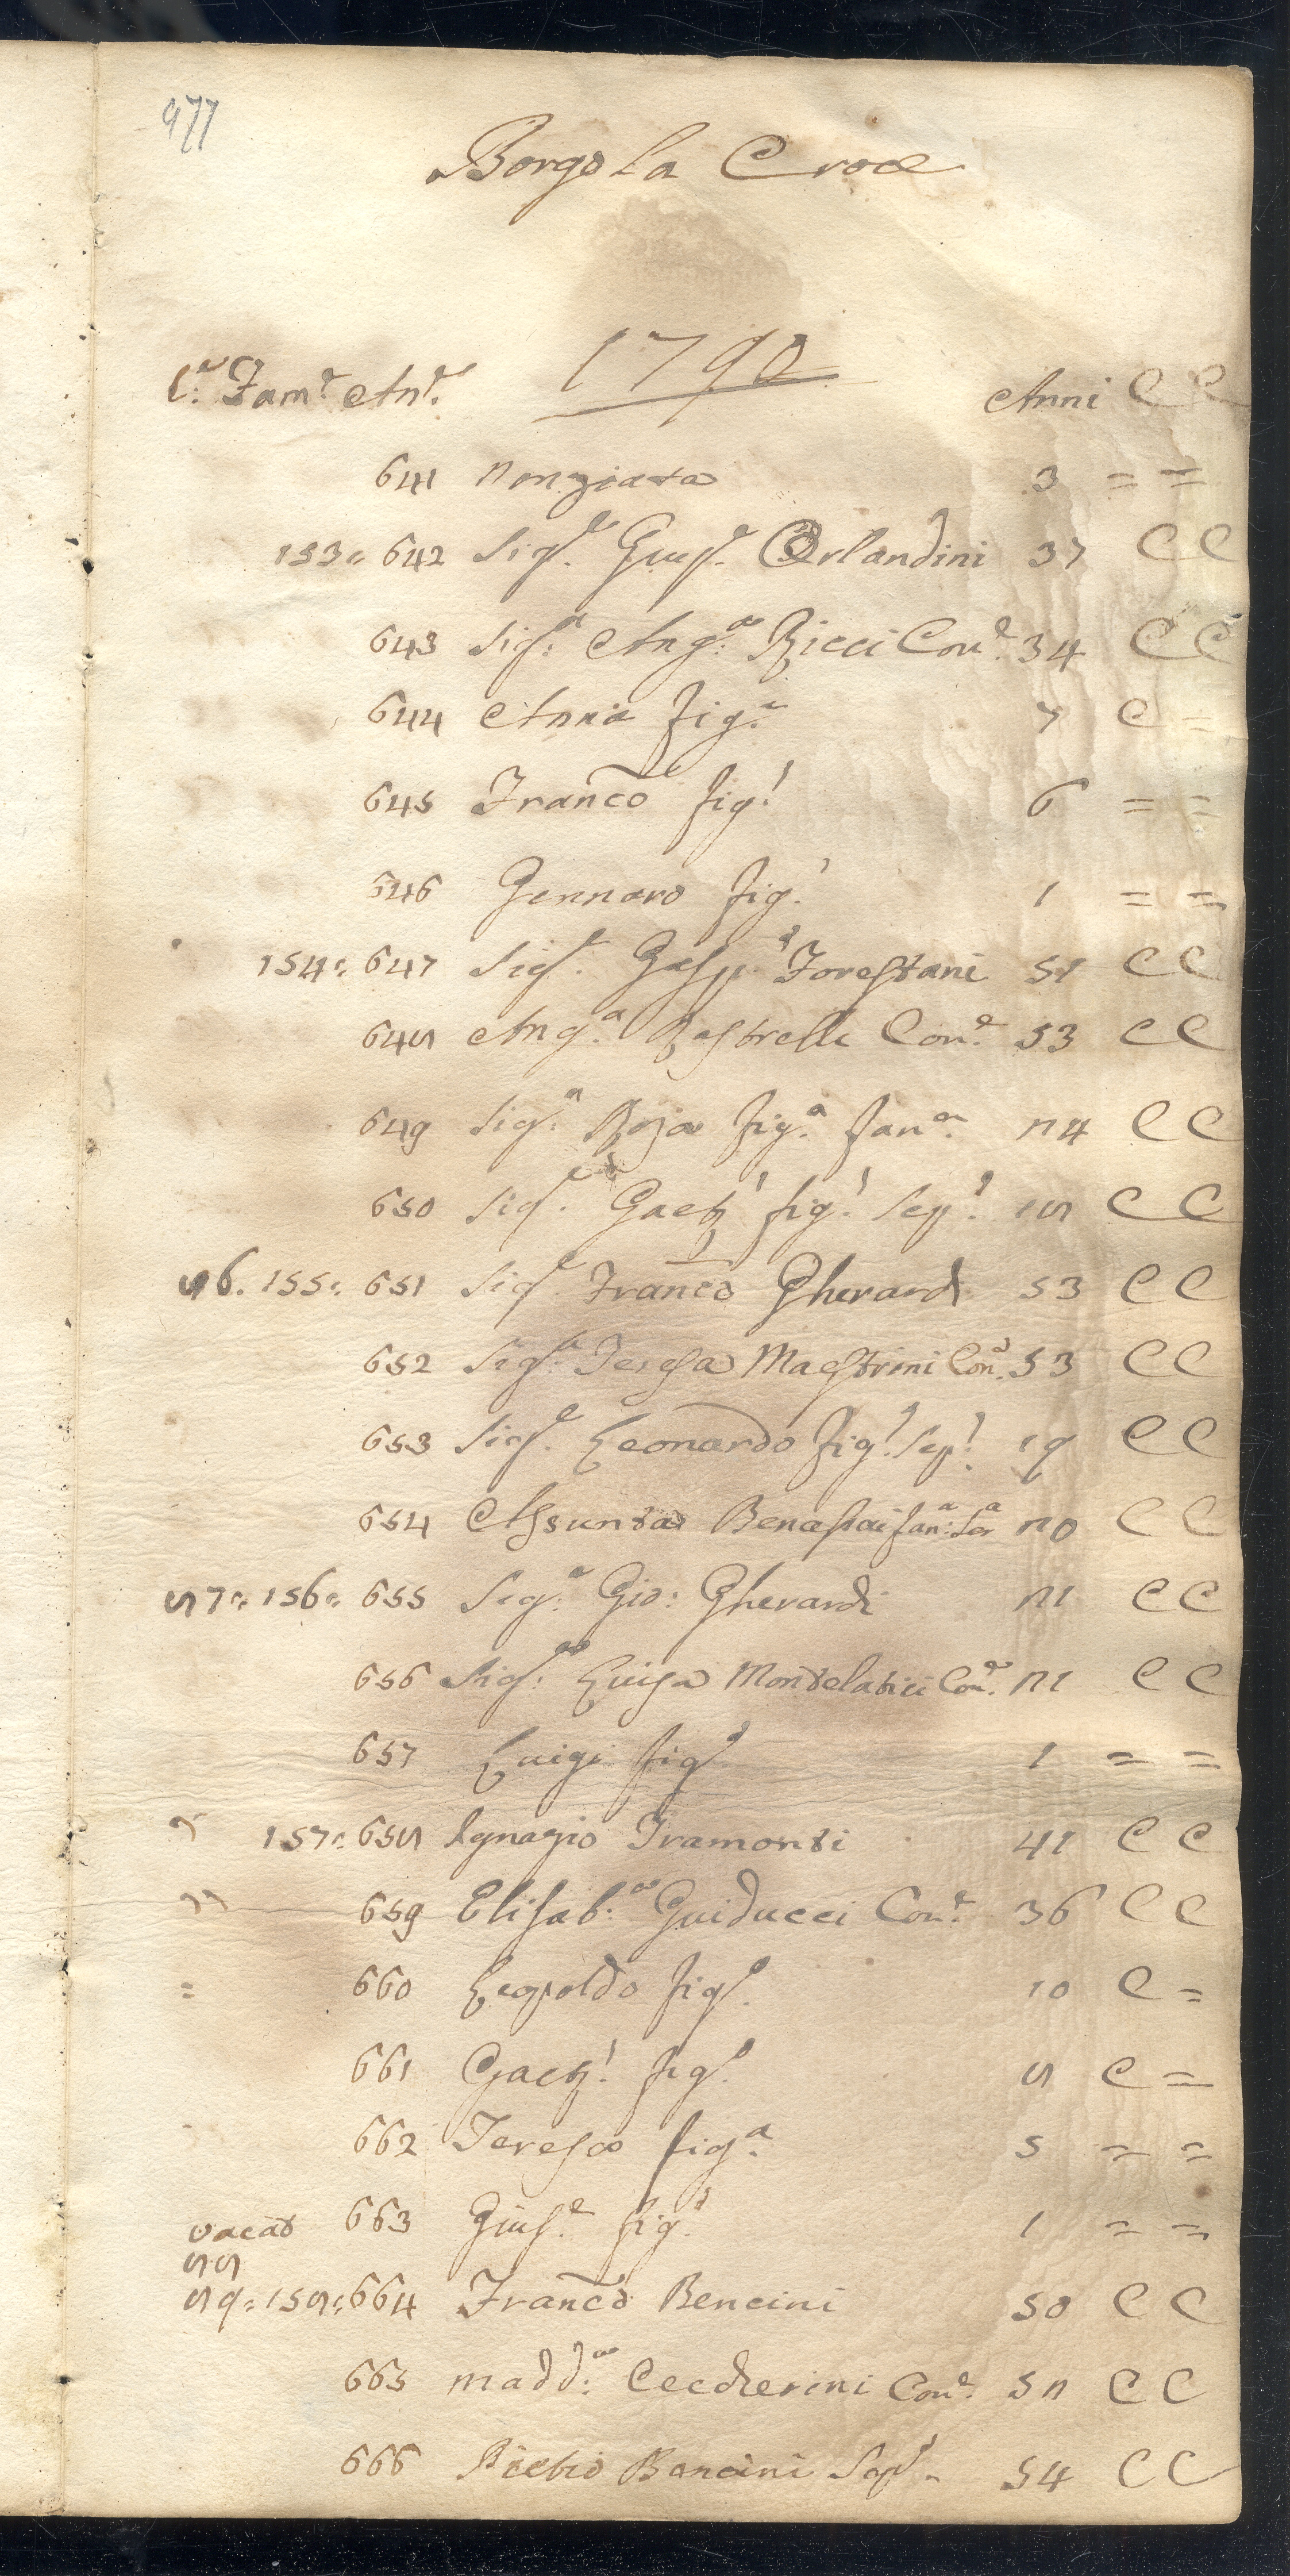 477
Borgo la Croce
1790
C.e Fam.e An.e Anni C C
641 Nonziata 3 = =
153. 642 Sig.r Gius.e Orlandini 37 C C
643 Sig.a Ang.a Ricci Con.e 34 C C
644 Anna fig.a 7 C =
645 Franco fig.o 6 = =
646 Gennaro fig.o 1 = =
154. 647 Sig.r Gasp.o Forestani 51 C C
648 Ang.a Rastrelli Con.e 53 C C
649 Sig.a Roza fig.a fan.a 24 C C
650 Sig.r Gaet.o fig.o Sep.o 18 C C
86. 155. 651 Sig.r Franco Gherardi 53 C C
652 Sig.a Teresa Maestrini Con.e 53 C C
653 Sig.r Leonardo fig.o Sep.o 19 C C
654 Assunta Benassai fan.a Ser.a 20 C C
87. 156. 655 Sig.r Gio: Gherardi 21 C C
656 Sig.a Luisa Montelatici Con.e 21 C C
657 Luigi fig.o 1 = =
157. 658 Ignazio Tramonti 41 C C
659 Elisab.a Guiducci Con.e 36 C C
= 660 Leopoldo fig.o 10 C =
661 Gaet.o fig.o 8 C =
662 Teresa fig.a 5 = =
vacat 663 Gius.e fig.o 1 = =
88
89. 158. 664 Franco Bencini 50 C C
665 Madd.a Ceccherini Con.e 52 C C
666 Pietro Bencini Sep.o 54 C C